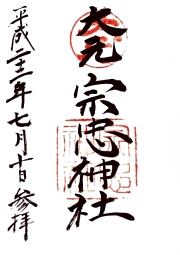 大元
宗忠神社
平成二十二年七月十日参拝